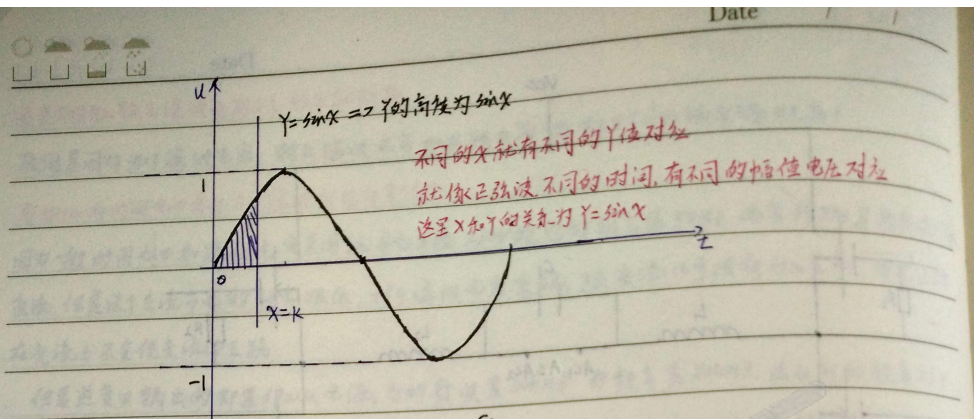 Date / /
u
Y=sinx => Y的高度为sinx
不同的X就有不同的Y值对应
1
就像正弦波,不同的时间,有不同的幅值电压对应
这里X和Y的关系为Y=sinX
t
0
X=K
-1